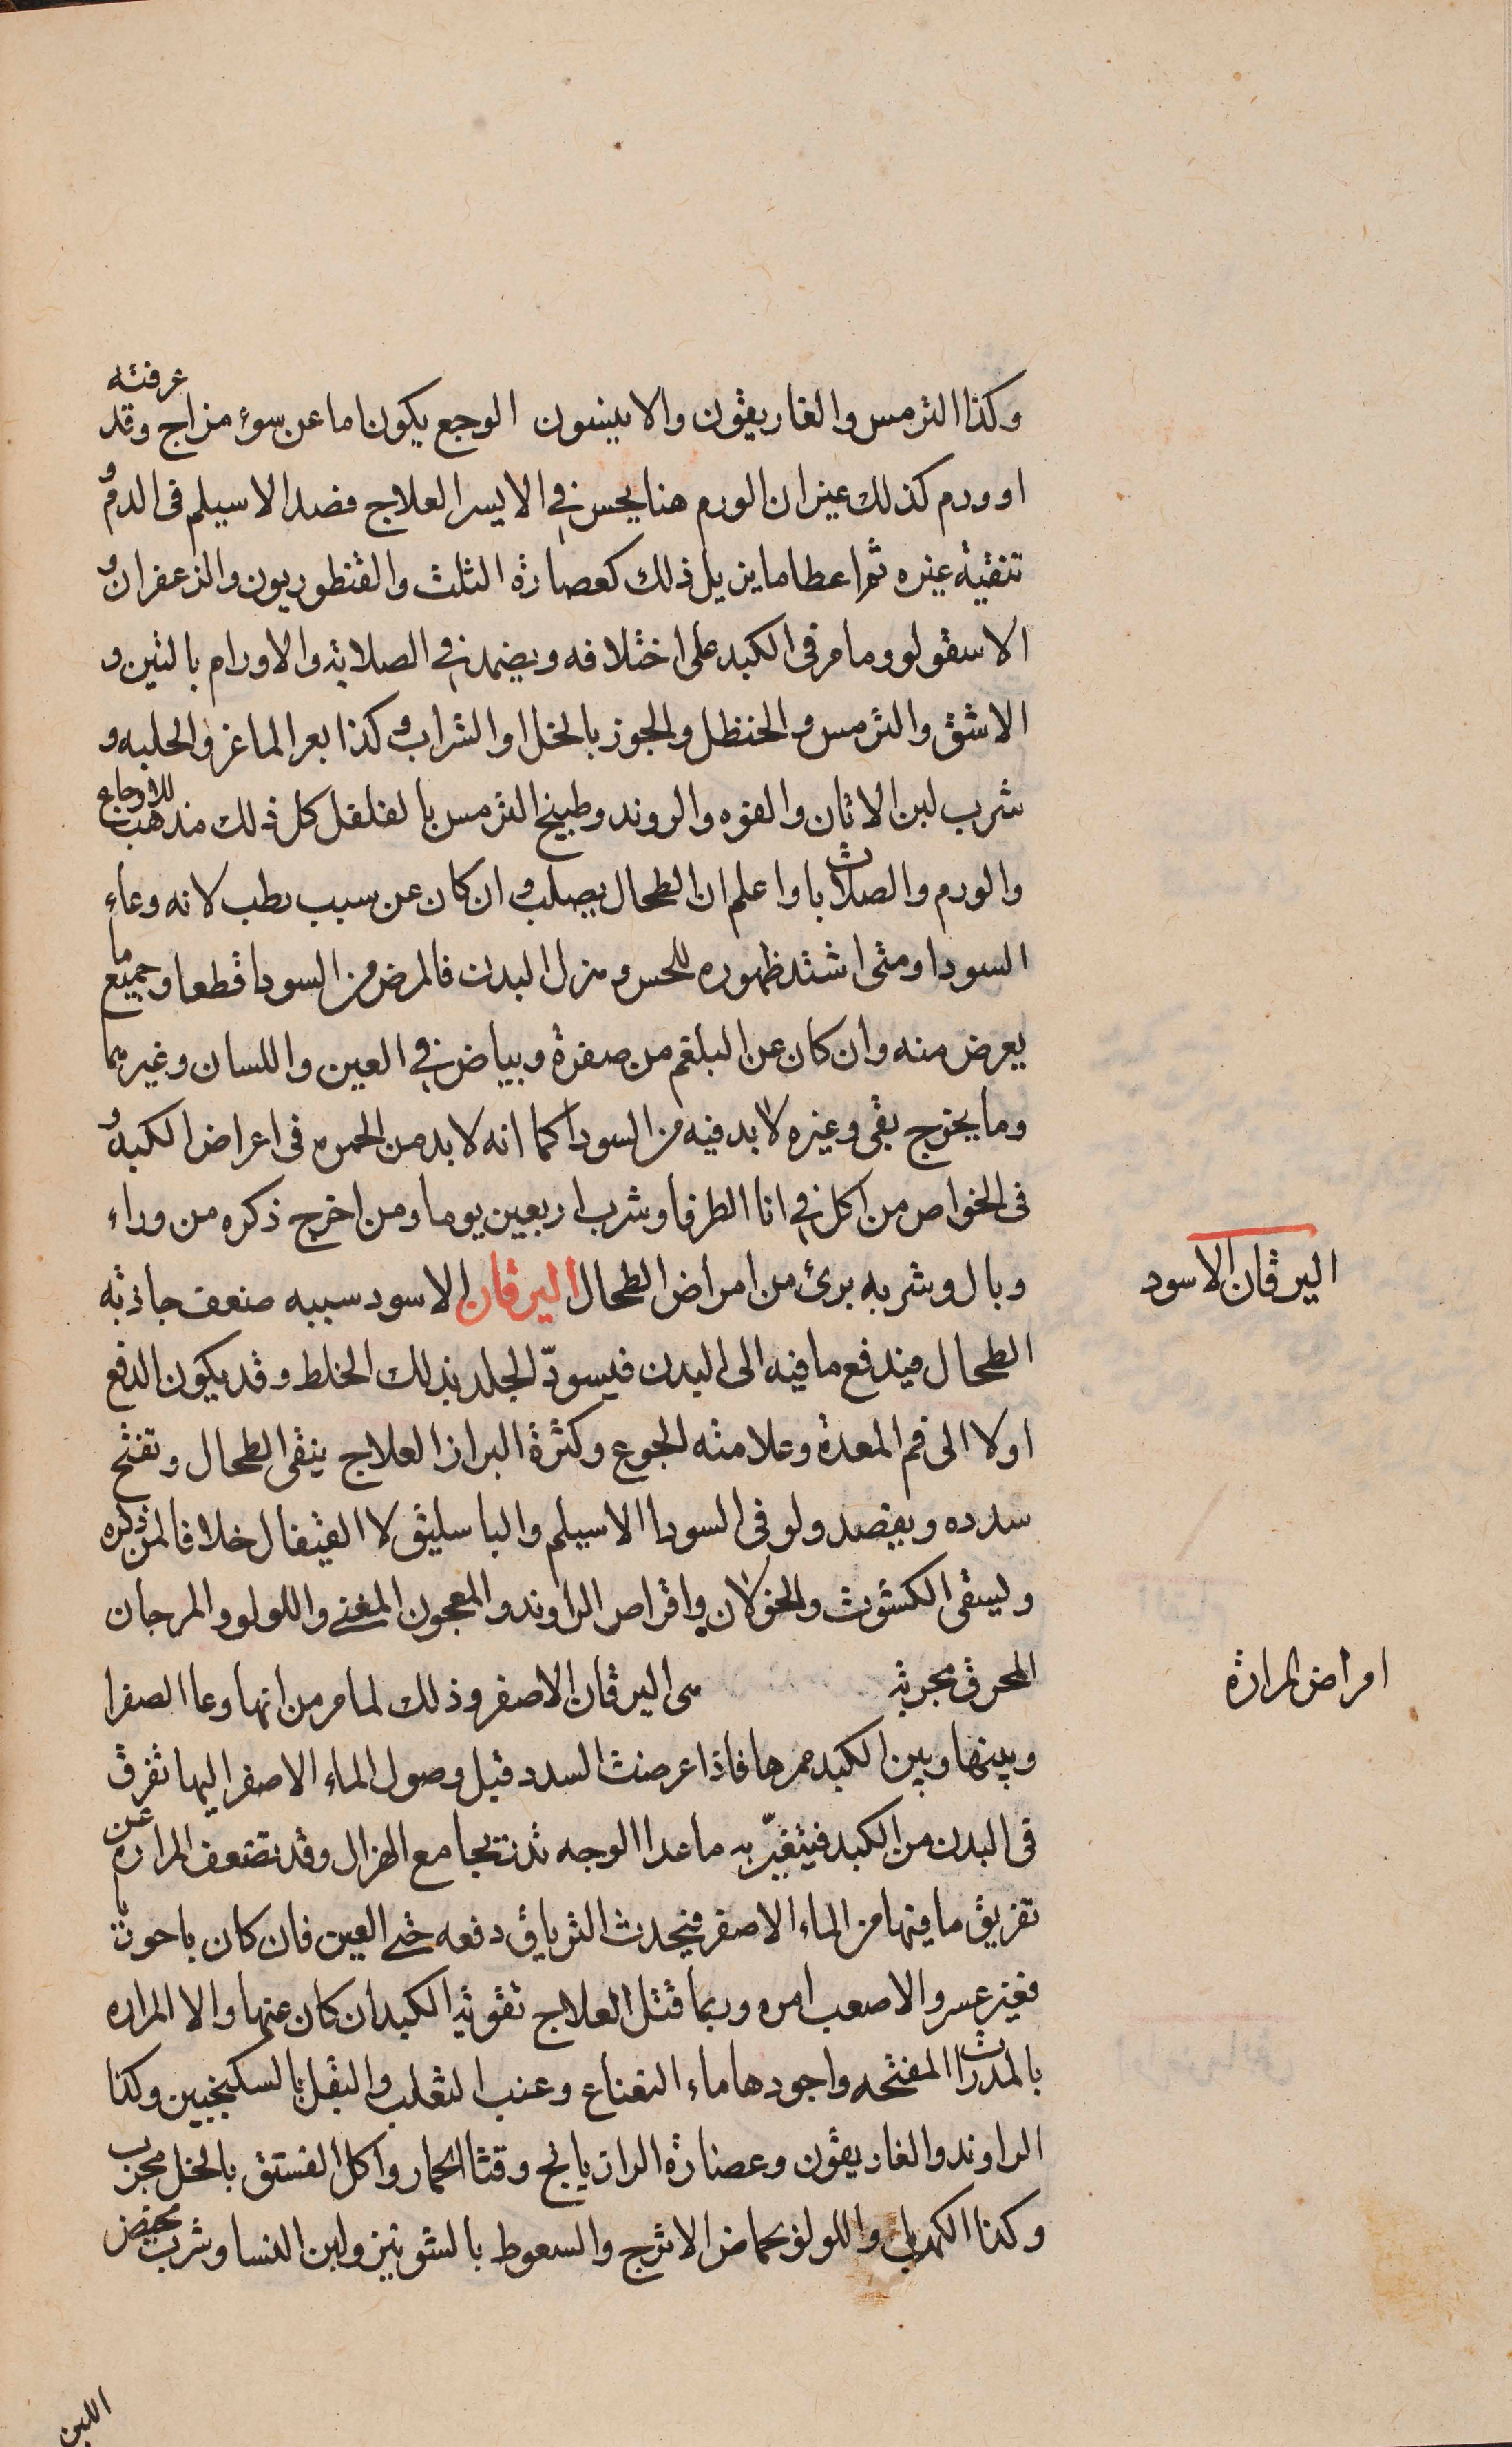 وكذا الترمس والغاريقون والانيسون الوجع يكون اما عن سوء مزاج وقد عرفته
او ورم كذلك غير ان الورم هنا يحس في الايسر العلاج فصد الاسيلم في الدم و
تنقية غيره ثم اعطا ما يزيل ذلك كعصارة الثلث والقنطوريون والزعفران و
الاسقولو وما مر في الكبد على اختلافه ويضمد في الصلابة والاورام بالتين و
الاشق والترمس والحنظل والجوز بالخل او الشراب وكذا بعر الماعز والحلبه و
شرب لبن الاتان والفوه والروند وطبيخ الترمس بالفلفل كل ذلك مذهب للاوجاع
والورم والصلابات واعلم ان الطحال يصلب وان كان عن سبب رطب لانه وعاء
السودا ومتى اشتد ظهوره للحس وهزل البدن فالمرض من السودا قطعا وجميع ما
يعرض منه وان كان عن البلغم من صفرة وبياض في العين واللسان وغيرهما
وما يخرج بقى وغيره لا بد فيه من السودا كما انه لا بد من الحمره في اعراض الكبد و
في الخواص من اكل في انا الطرفا وشرب اربعين يوما ومن اخرج ذكره من وراء
وبال وشربه برئ من امراض الطحال اليرقان الاسود سببه ضعف جاذبة
الطحال فيندفع ما فيه الى البدن فيسودّ الجلد بذلك الخلط وقد يكون الدفع
اولا الى فم المعدة وعلامته الجوع وكثرة البراز العلاج ينقى الطحال وتفتح
سدده ويفصد ولو في السودا الاسيلم والباسليق لا القيفال خلافا لمن ذكره
وليسقى الكشوث والخولان واقراص الراوند والمعجون المغني واللولو والمرجان
المحرق مجربة مى اليرقان الاصفر وذلك لما مر من انها وعا الصفرا
وبينها وبين الكبد ممرها فاذا عرضت السدد قبل وصول الماء الاصفر اليها تفرق
في البدن من الكبد فيتغيّر به ما عدا الوجه تدريجا مع الهزال وقد تضعف المراره عن
تفريق ما فيها من الماء الاصفر فيحدث الترياق دفعه حتى العين فان كان باحوريا
فغير عسر والا صعب امره وربما قتل العلاج تقوية الكبد ان كان عنها والا المراره
بالمدرات المفتحه واجودها ماء النعناع وعنب الثعلب والبقل بالسكنجبين وكذا
الراوند والغاريقون وعصارة الرازيانج وقثا الحمار واكل الفستق بالخل مجرب
وكذا الكهربا واللولو بحماض الاترج والسعوط بالشونيز ولبن النسا وشرب مخيض
اللبن
اليرقان الاسود
امراض المرارة